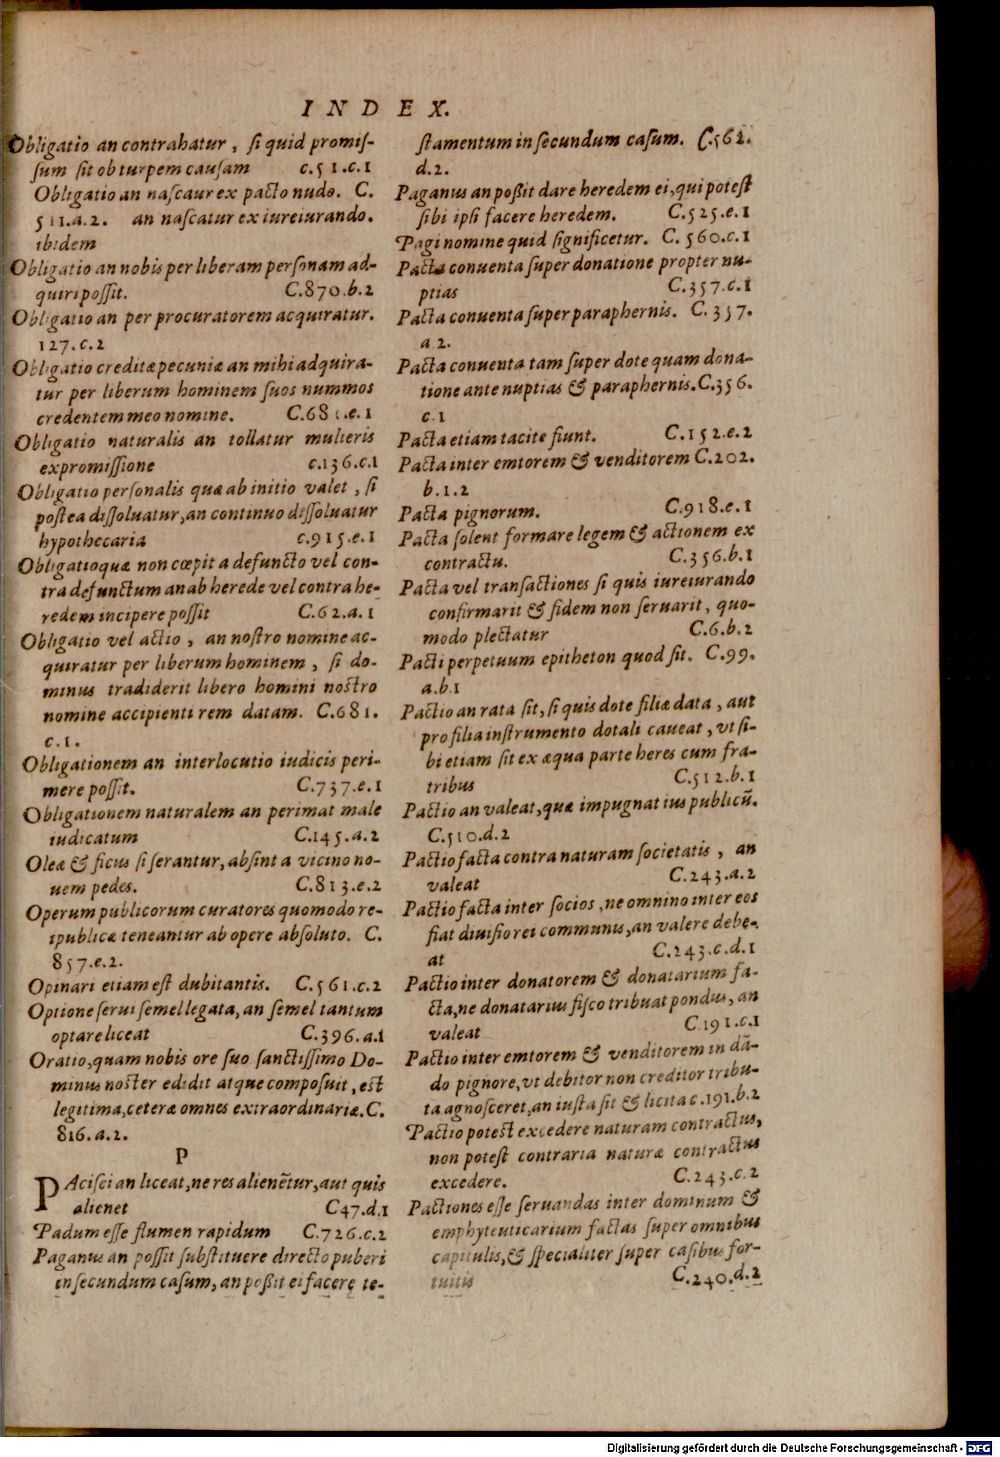 INDEX.
Obligatio an contrahatur, si quid promis-
sum sit ob turpem causam c.51.c.1
Obligatio an nascaur ex pacto nudo. C.
511.a.2. an nascatur ex iureiurando.
ibidem
Obligatio an nobis per liberam personam ad-
quiri possit. C.870.b.2
Obligatio an per procuratorem acquiratur.
127.c.2
Obligatio creditæ pecuniæ an mihi adquira-
tur per liberum hominem suos nummos
credentem meo nomine. C.681.e.1
Obligatio naturalis an tollatur mulieris
expromissione c.136.c.1
Obligatio personalis quæ ab initio valet, si
postea dissoluatur, an continuo dissoluatur
hypothecaria c.915.e.1
Obligatio quæ non cœpit a defuncto vel con-
tra defunctum an ab herede vel contra he-
redem incipere possit C.62.a.1
Obligatio vel actio, an nostro nomine ac-
quiratur per liberum hominem, si do-
minus tradiderit libero homini nostro
nomine accipienti rem datam. C.681.
c.1.
Obligationem an interlocutio iudicis peri-
mere possit. C.737.e.1
Obligationem naturalem an perimat male
iudicatum C.145.a.2
Oleæ & ficus si serantur, absint a vicino no-
uem pedes. C.813.e.2
Operum publicorum curatores quomodo re-
ipublicæ teneantur ab opere absoluto. C.
857.e.2.
Opinari etiam est dubitantis. C.561.c.2
Optione serui semel legata, an semel tantum
optare liceat C.396.a.1
Oratio, quam nobis ore suo sanctissimo Do-
minus noster edidit atque composuit, est
legitima, ceteræ omnes extraordinariæ. C.
816.a.2.
P
PAcisci an liceat, ne res alienẽtur, aut quis
alienet C47.d.1
Padum esse flumen rapidum C.726.c.2
Paganus an possit substituere directo puberi
in secundum casum, an poßit ei facere te-
stamentum in secundum casum. C.562.
d.2.
Paganus an poßit dare heredem ei, qui potest
sibi ipsi facere heredem. C.525.e.1
Pagi nomine quid significetur. C.560.c.1
Pacta conuenta super donatione propter nu-
ptias C.357.c.1
Pacta conuenta super paraphernis. C.357.
a.2.
Pacta conuenta tam super dote quam dona-
tione ante nuptias & paraphernis. C.356.
c.1
Pacta etiam tacite fiunt. C.152.e.2
Pacta inter emtorem & venditorem C.202.
b.1.2
Pacta pignorum. C.918.e.1
Pacta solent formare legem & actionem ex
contractu. C.356.b.1
Pacta vel transactiones si quis iureiurando
confirmarit & fidem non seruarit, quo-
modo plectatur C.6.b.2
Pacti perpetuum epitheton quod sit. C.99.
a.b.1
Pactio an rata sit, si quis dote filiæ data, aut
pro filia instrumento dotali caueat, vt si-
bi etiam sit ex æqua parte heres cum fra-
tribus C.512.b.1
Pactio an valeat, quæ impugnat ius publicũ.
C.510.d.2
Pactio facta contra naturam societatis, an
valeat C.243.a.2
Pactio facta inter socios, ne omnino inter eos
fiat diuisio rei communis, an valere debe-
at C.243.c.d.1
Pactio inter donatorem & donatarium fa-
cta, ne donatarius fisco tribuat pondus, an
valeat C.191.c.1
Pactio inter emtorem & venditorem in dã-
do pignore, vt debitor non creditor tribu-
ta agnosceret, an iusta sit & licita c.191.b.2
Pactio potest excedere naturam contractus,
non potest contraria naturæ contractus
excedere. C.243.c.2
Pactiones esse seruandas inter dominum &
emphyteuticarium factas super omnibus
capitulis, & specialiter super casibus for-
tuitis C.240.d.2
Digitalisierung gefördert durch die Deutsche Forschungsgemeinschaft - DFG